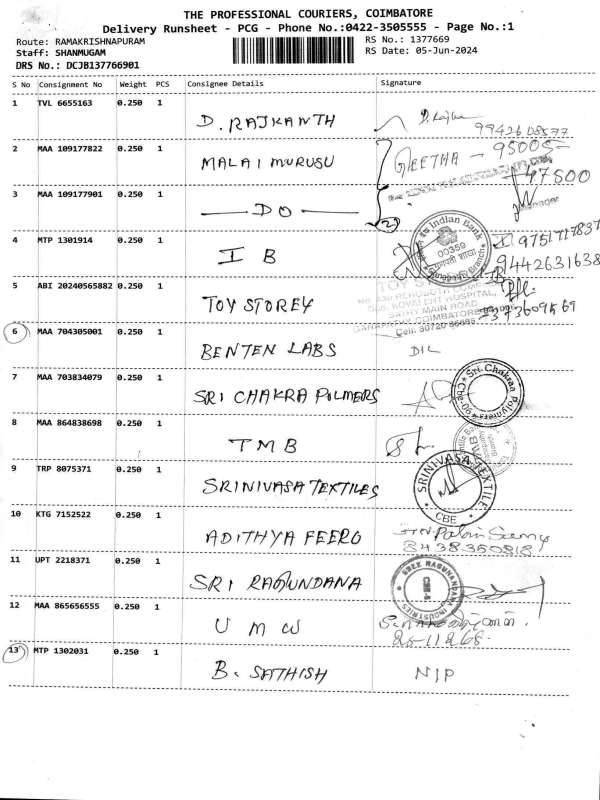 THE PROFESSIONAL COURIERS, COIMBATORE
Delivery Runsheet - PCG - Phone No.:0422-3505555 - Page No.:1
Route: RAMAKRISHNAPURAM RS No.: 1377669
Staff: SHANMUGAM RS Date: 05-Jun-2024
DRS No.: DCJB137766901
S No Consignment No Weight PCS Consignee Details Signature
1 TVL 6655163 0.250 1 D. RAJKANTH
2 MAA 109177822 0.250 1 MALAI MURUSU GEETHA - 95005-
47800
3 MAA 109177901 0.250 1 DO 2
4 MTP 1301914 0.250 1 I B Indian Bank 00359 9751717837
9442631638
5 ABI 20240565882 0.250 1 TOY STOREY
TOY
KOVAI ENT HOSPITAL,
SATHY MAIN ROAD
6 MAA 704305001 0.250 1 BENTEN LABS D/L
7 MAA 703834079 0.250 1 SRI CHAKRA POLMERS Sri Chakraa Polymers
8 MAA 864838698 0.250 1 TMB
9 TRP 8075371 0.250 1 SRINIVASA TEXTILES SRINIVASA TEXTILE CBE
10 KTG 7152522 0.250 1 ADITHYA FEERO
8438350818
11 UPT 2218371 0.250 1 SRI RAGUNDANA SREE RAGUNANDANA INDUSTRIES
12 MAA 865656555 0.250 1 U M W
13 MTP 1302031 0.250 1 B. SATHISH N/P